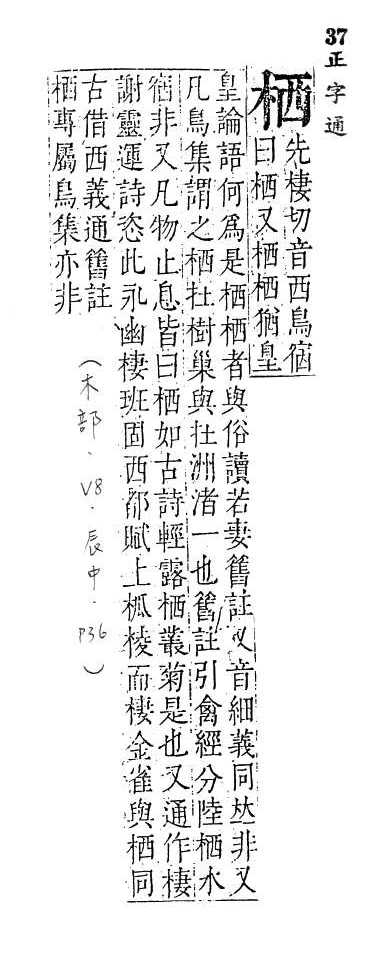 37 正字通
栖 先棲切音西鳥宿
曰栖又栖栖猶皇
皇論語何爲是栖栖者與俗讀若妻舊註又音細義同𠀤非又
凡鳥集謂之栖在樹巢與在洲渚一也舊註引禽經分陸栖水
宿非又凡物止息皆曰栖如古詩輕露栖叢菊是也又通作棲
謝靈運詩恣此永幽棲班固西都賦上柧棱而棲金雀與栖同
古借西義通舊註
栖專屬鳥集亦非
(木部.V8.辰中.P36)